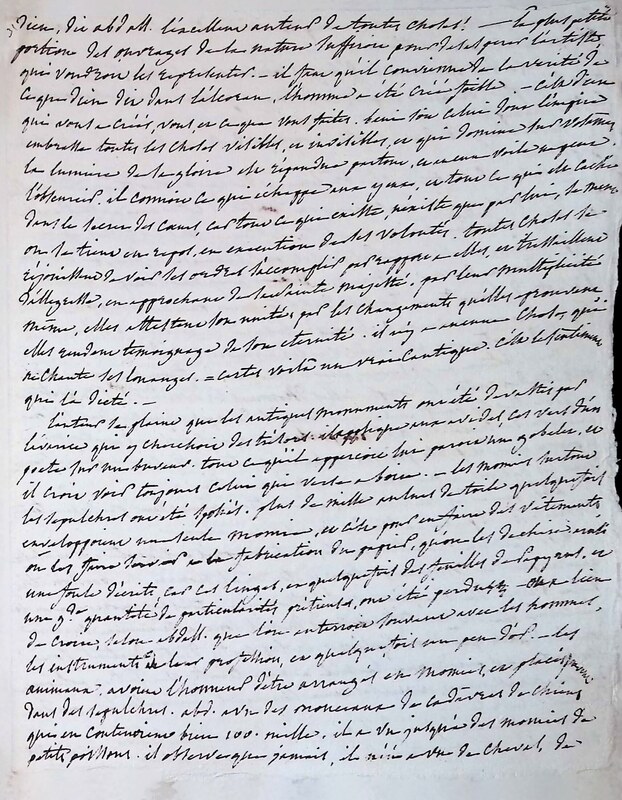 Dieu, dit abdall. l'excellent auteur de toutes choses! — la plus petite
portion des ouvrages de la nature suffiroit pour desesperer l'artiste
qui voudroit les representer. — il faut qu'il convienne de la verité de
ce que dieu dit dans l'alcoran, l'homme a été créé foible. — c'est dieu
qui vous a créés, vous, et ce que vous faites. beni soit celui dont l'empire
embrasse toutes les choses visibles, et invisibles, et qui domine sur
la lumiere de sa gloire est répandue partout, et aucun voile
l'obscurcit, il connoit ce qui échappe aux yeux, et tout ce qui est caché
dans le secret des cœurs, car tout ce qui existe, n'existe que par lui, se meut
ou se tient en repos, en execution de ses volontés. toutes choses se
rejouissent de voir ses ordres s'accomplir par rapport a elles, et tressaillent
d'allegresse, en approchant de sa sainte majesté. par leur multiplicité
même, elles attestent son unité, par les changements qu'elles éprouvent
elles rendent temoignage de son eternité. il n'y a aucune chose, qui
ne chante ses louanges. = certes voilà un vrai cantique. c'est le sentiment
qui l'a dicté. —
l'auteur se plaint que les antiques monuments ont été devastés par
l'avarice qui y cherchoit des trésors. il applique aux avides, ces vers d'un
poete sur un buveur. tout ce qu'il apperçoit lui paroit un gobelet, et
il croit voir toujours celui qui verse a boire. — les momies surtout
les sepulchres ont été spoliés. plus de mille aulnes de toile quelquefois
enveloppoient une seule momie, et c'est pour en faire des vêtements
ou les faire servir a la fabrication du papier, qu'on les dechire
une foule d'écrits, car ces linges, et quelquefois des feuilles de papyrus, et
une gde quantité de particularités précieuses, ont été perdues. — lieu
de croire, selon abdall. que l'on enterroit souvent avec les hommes,
les instruments de leur profession, et quelquefois un peu d'or. — les
animaux avoient l'honneur d'être arrangés en momies, et placés
dans des sepulchres. abd. a vu des monceaux de cadavres de chiens
qui en contenoient bien 100. mille, il a vu jusqu'a des momies de
petits poissons. il observe que jamais, il n'en a vu de cheval, de